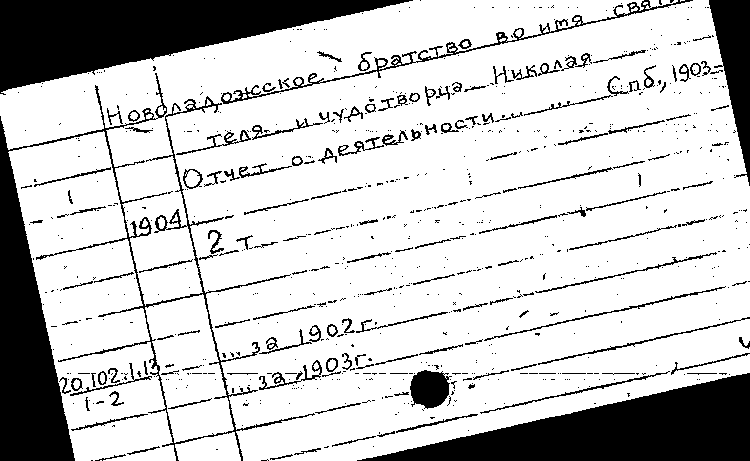 Новоладожское братство во имя святи
теля и чудотворца Николая
Отчет о деятельности... ... Спб., 1903-
1904.
2 т.
... за 1902 г.
20.102.1.13-
1-2
... за 1903 г.